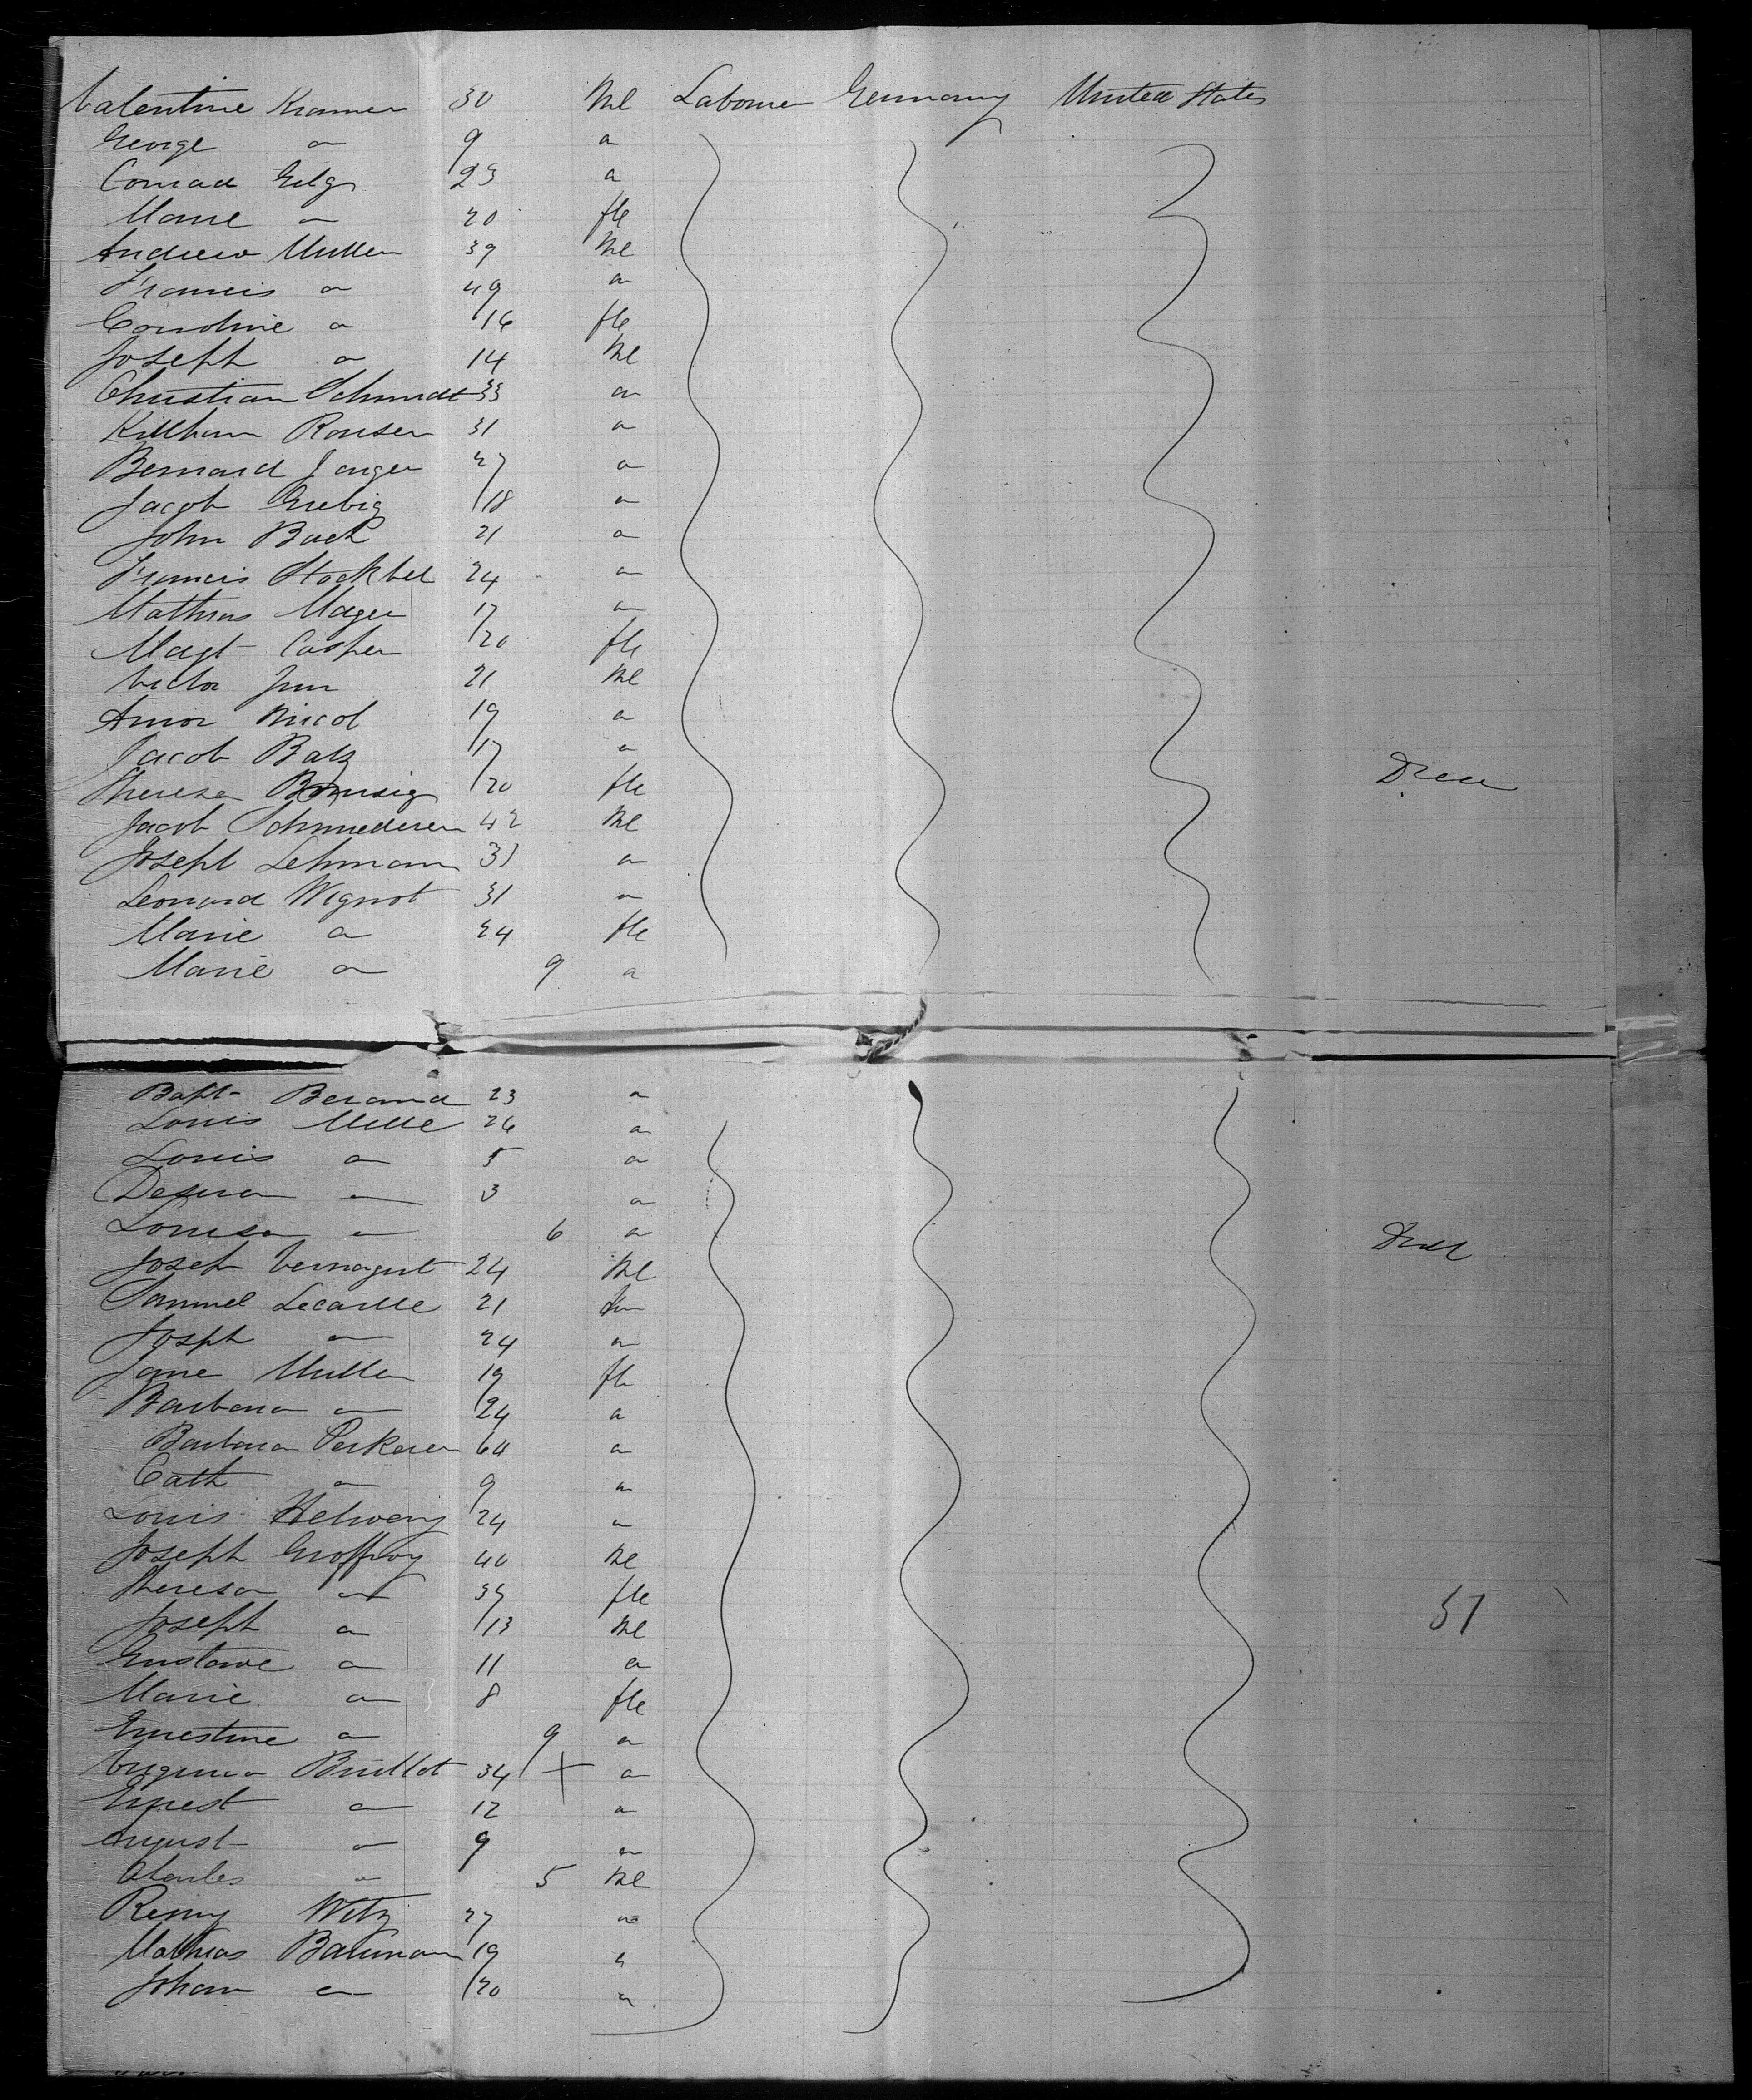 Valentine Kramer 30 Ml Labourer Germany United States
George " 9 "
Conrad Gilgs 23 "
Marie " 20 fle
Andrew Muller 39 Ml
Francis " 49 "
Caroline " 16 fle
Joseph " 14 Ml
Christian Schmidt 33 "
Killham Rouser 31 "
Bernard Jarger 27 "
Jacob Grebig 18 "
John Back 21 "
Francis Stockbel 24 "
Mathias Mager 17 "
Magt Casper 20 fle
Victor Jun 21 Ml
Amor Nicol 19 "
Jacob Batz 17 "
Theresa 20 fle Died
Jacob Schmiederer 42 Ml
Joseph Lehmann 31 "
Leonard Wignot 31 "
Marie " 24 fle
Marie " 9 "
Bapt Beraud 23 "
Louis Mille 26 "
Louis " 5 "
" 3 "
Louisa " 6 " Died
Joseh Vernagut 24 Ml
Samuel Lecaille 21
Josph " 24 "
Jane Muller 19 fle
Barbara " 24 "
Barbara Perkerer 64 "
Cath " 9 "
Louis Helweny 24 "
Joseph Groffroy 40 Ml
Theresa " 39 fle
Joseph " 13 Ml 51
Gustave " 11 "
Marie " 8 fle
Ernestine " 9 "
Virginia Buillot 34 + "
Ernest " 12 "
August " 9 "
Charles " 5 Ml
Remy Witz 27 "
Mathias Baumann 19 "
Johan " 20 "